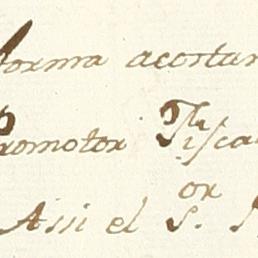 forma acostum
Promotor Fisca
Assi el S.or